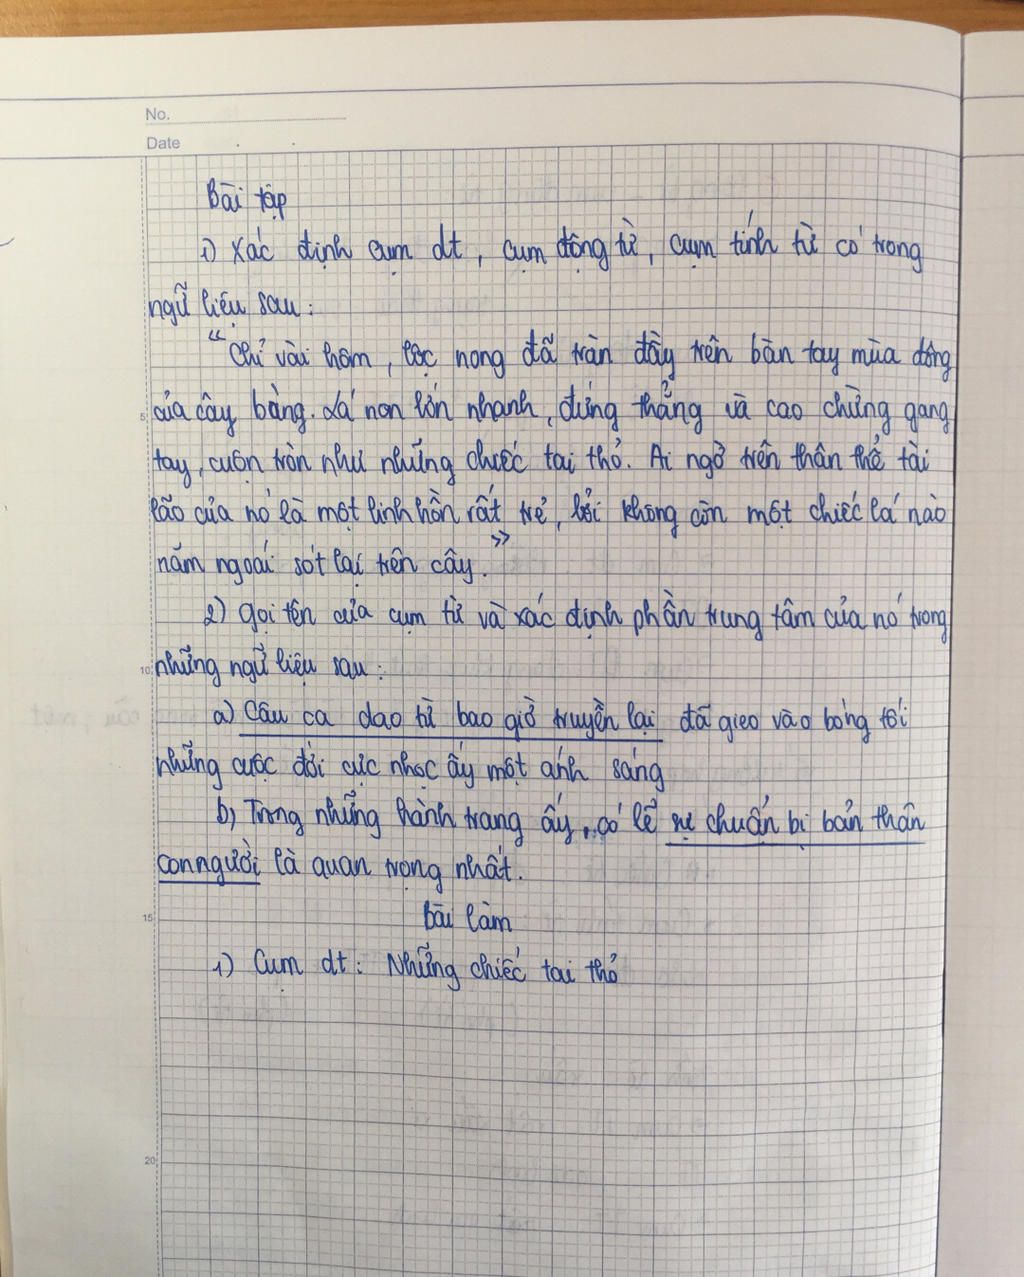 No.
Date
Bài tập
1) Xác định cụm dt, cụm động từ, cụm tính từ có trong
ngữ liệu sau:
"Chỉ vài hôm, lộc nong đã tràn đầy trên bàn tay mùa đông
của cây bàng. Lá non lớn nhanh, đứng thẳng và cao chừng gang
tay, cuộn tròn như những chiếc tai thỏ. Ai ngờ trên thân thể tài
lão của nó là một linh hồn rất trẻ, bởi không còn một chiếc lá nào
năm ngoái sót lại trên cây."
2) gọi tên của cụm từ và xác định phần trung tâm của nó trong
những ngữ liệu sau:
a) Câu ca dao từ bao giờ truyền lại đã gieo vào bóng tối
những cuộc đời cực nhọc ấy một ánh sáng
b) Trong những hành trang ấy, có lẽ sự chuẩn bị bản thân
con người là quan trọng nhất.
Bài làm
1) Cụm dt: Những chiếc tai thỏ
5
10
15
20